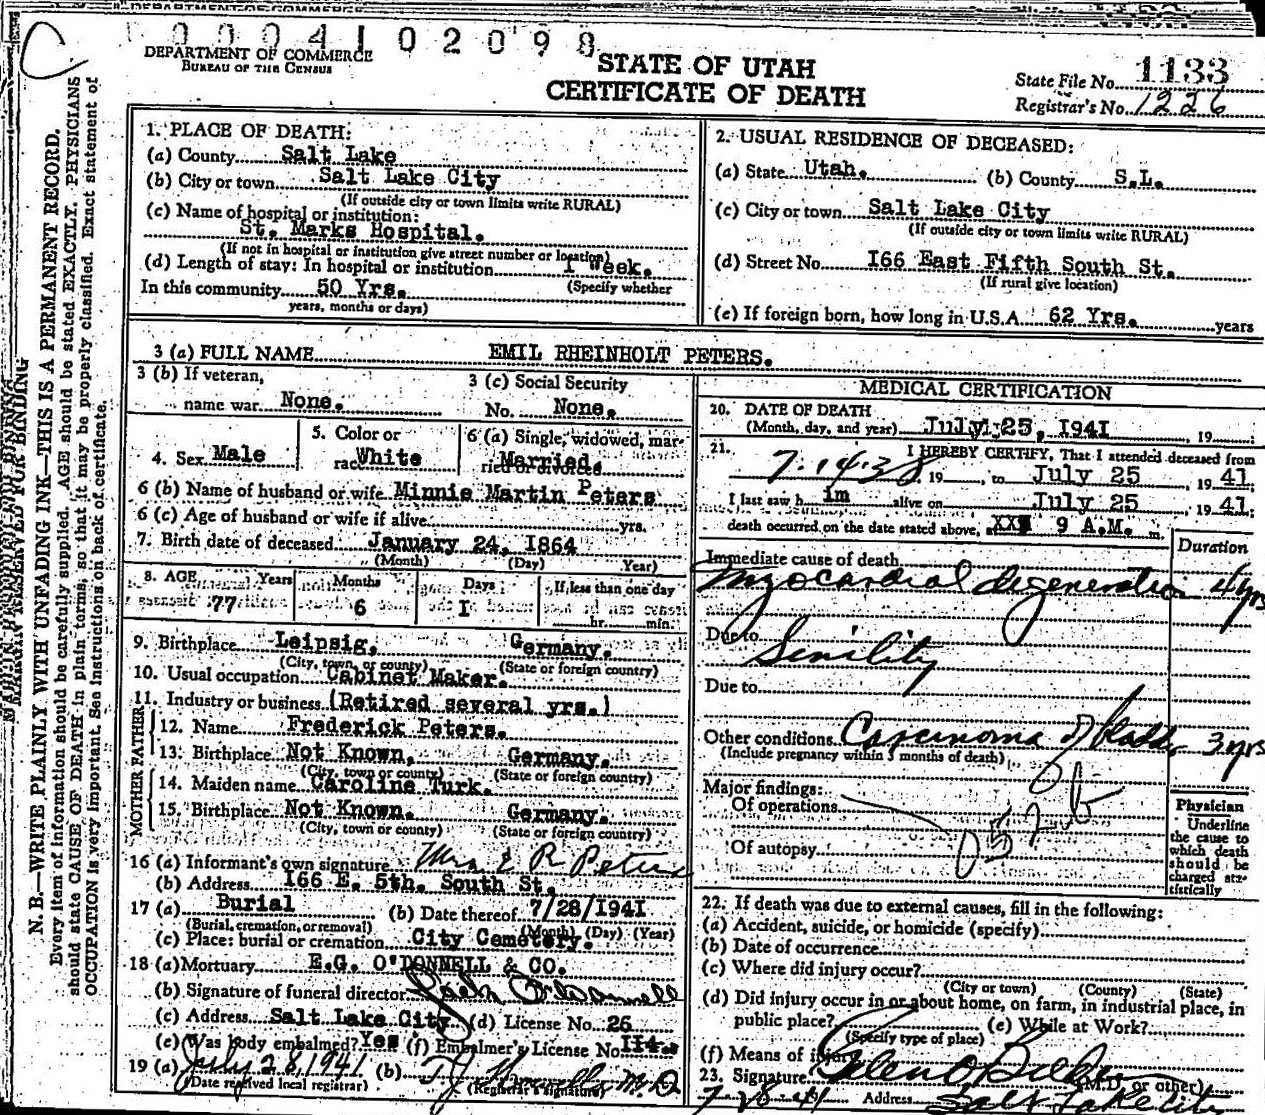 0 0 0 4 1 0 2 0 9 8
DEPARTMENT OF COMMERCE
BUREAU OF THE CENSUS
STATE OF UTAH
CERTIFICATE OF DEATH
State File No. 1133
Registrar's No. 1226
N. B.—WRITE PLAINLY WITH UNFADING INK—THIS IS A PERMANENT RECORD.
Every item of information should be carefully supplied. AGE should be stated EXACTLY. PHYSICIANS
should state CAUSE OF DEATH in plain terms, so that it may be properly classified. Exact statement of
OCCUPATION is very important. See instructions on back of certificate.
MARGIN RESERVED FOR BINDING
1. PLACE OF DEATH:
(a) County Salt Lake
(b) City or town Salt Lake City
(If outside city or town limits write RURAL)
(c) Name of hospital or institution:
St. Marks Hospital.
(If not in hospital or institution give street number or location)
(d) Length of stay: In hospital or institution 1 Week.
In this community 50 Yrs. (Specify whether
years, months or days)
2. USUAL RESIDENCE OF DECEASED:
(a) State Utah. (b) County S.L.
(c) City or town Salt Lake City
(If outside city or town limits write RURAL)
(d) Street No. I66 East Fifth South St.
(If rural give location)
(e) If foreign born, how long in U.S.A. 62 Yrs. years
3 (a) FULL NAME EMIL RHEINHOLT PETERS.
3 (b) If veteran, name war None.
3 (c) Social Security No. None.
4. Sex Male
5. Color or race White
6 (a) Single, widowed, married or divorced Married
6 (b) Name of husband or wife Minnie Martin Peters
6 (c) Age of husband or wife if alive yrs.
7. Birth date of deceased January 24, I864
(Month) (Day) Year)
8. AGE Years 77 Months 6 Days I If less than one day hr. min.
9. Birthplace Leipsig, Germany.
(City, town, or county) (State or foreign country)
10. Usual occupation Cabinet Maker.
11. Industry or business (Retired several yrs.)
FATHER
12. Name Frederick Peters.
13. Birthplace Not Known, Germany.
(City, town or county) (State or foreign country)
MOTHER
14. Maiden name Caroline Turk.
15. Birthplace Not Known. Germany.
(City, town or county) (State or foreign country)
16 (a) Informant's own signature Mrs E R Peters
(b) Address I66 E. 5th. South St.
17 (a) Burial (b) Date thereof 7/28/I94I
(Burial, cremation, or removal) (Month) (Day) (Year)
(c) Place: burial or cremation City Cemetery.
18 (a) Mortuary E.G. O'DONNELL & CO.
(b) Signature of funeral director O'Donnell
(c) Address Salt Lake City (d) License No. 26
(e) Was body embalmed? Yes (f) Embalmer's License No. II4.
19 (a) July 28, 1941 (b) M.D.
(Date received local registrar) (Registrar's signature)
MEDICAL CERTIFICATION
20. DATE OF DEATH
(Month, day, and year) July 25, I94I , 19
21. I HEREBY CERTIFY, That I attended deceased from
7-14-38, 19 , to July 25 , 19 41;
I last saw h im alive on July 25 , 19 41;
death occurred on the date stated above, at 9 A.M. m.
Duration
Immediate cause of death
Myocardial degeneration 4 yrs
Due to Senility
Due to
Other conditions Carcinoma of bladder 3 yrs
(Include pregnancy within 3 months of death)
Major findings:
Of operations
Of autopsy
052b
Physician
Underline
the cause to
which death
should be
charged sta-
tistically
22. If death was due to external causes, fill in the following:
(a) Accident, suicide, or homicide (specify)
(b) Date of occurrence
(c) Where did injury occur?
(City or town) (County) (State)
(d) Did injury occur in or about home, on farm, in industrial place, in
public place? (e) While at Work?
(Specify type of place)
(f) Means of injury
23. Signature (M.D. or other)
Address Salt Lake City